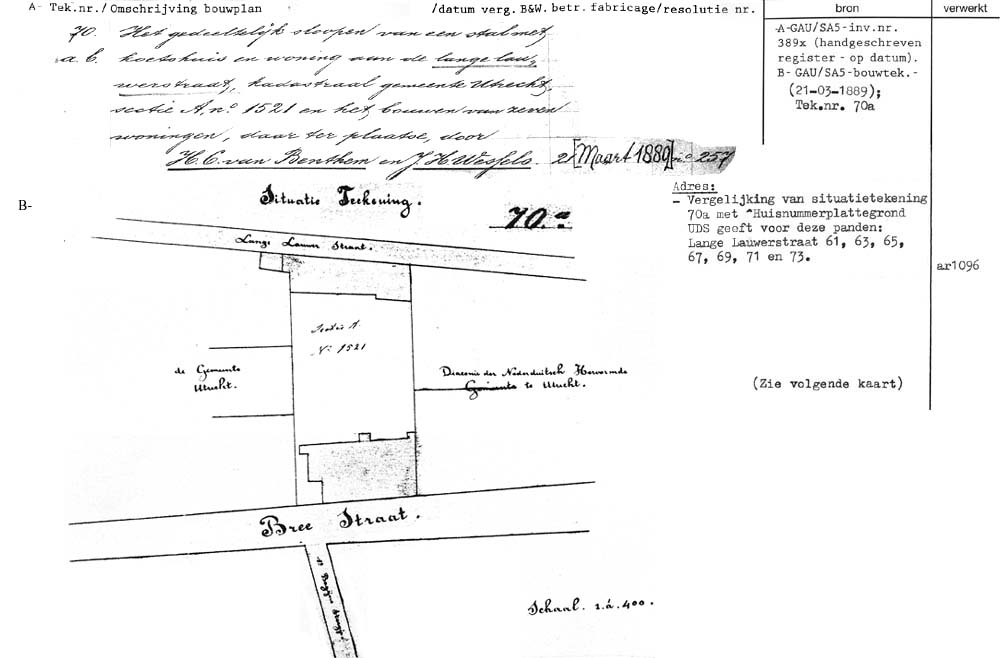 A- Tek.nr./Omschrijving bouwplan /datum verg. B&W. betr. fabricage/resolutie nr. bron verwerkt
70. Het gedeeltelijk sloopen van een stal met
a. b. koetshuis en woning aan de lange lau-
werstraat, kadastraal gemeente Utrecht,
sectie A, no 1521 en het bouwen van zeven
woningen, daar ter plaatse, door
H. C. van Benthem en J. H. Wessels. 21 [Maart 1889] no 257
A-GAU/SA5-inv.nr.
389x (handgeschreven
register - op datum).
B- GAU/SA5-bouwtek.-
(21-03-1889);
Tek.nr. 70a
B-
Situatie Teekening.
70.a
Lange Lauwer Straat.
Sectie A.
No 1521
de Gemeente
Utrecht.
Diaconie der Nederduitsch Hervormde
Gemeente te Utrecht.
Bree Straat.
Schaal. 1.á.400.
Adres:
- Vergelijking van situatietekening
70a met "Huisnummerplattegrond
UDS geeft voor deze panden:
Lange Lauwerstraat 61, 63, 65,
67, 69, 71 en 73.
ar1096
(Zie volgende kaart)